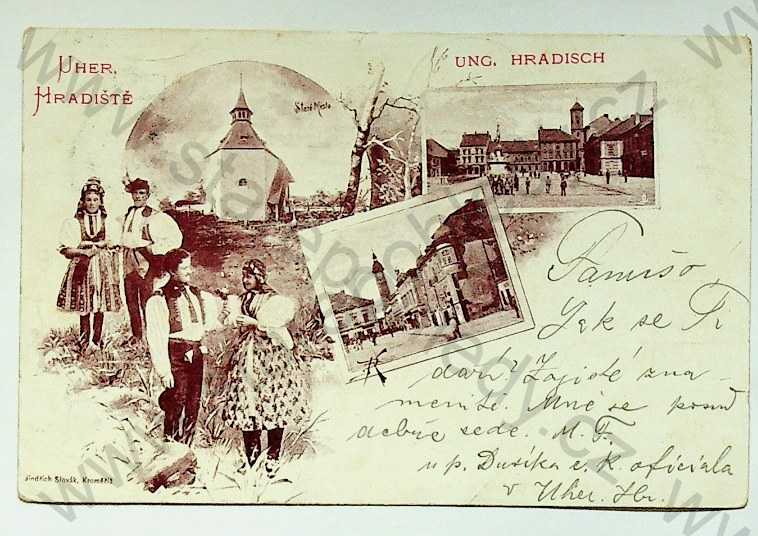 UHER.
HRADIŠTĚ
UNG. HRADISCH
Staré Město
Jak se Ti
daří? Zajisté zna-
menitě. Mně se posud
dobře vede. M. T.
u p. Dusíka c. k. oficiala
v Uher. Hr.
Jindřich Slovák, Kroměříž
www.starepohledy.cz